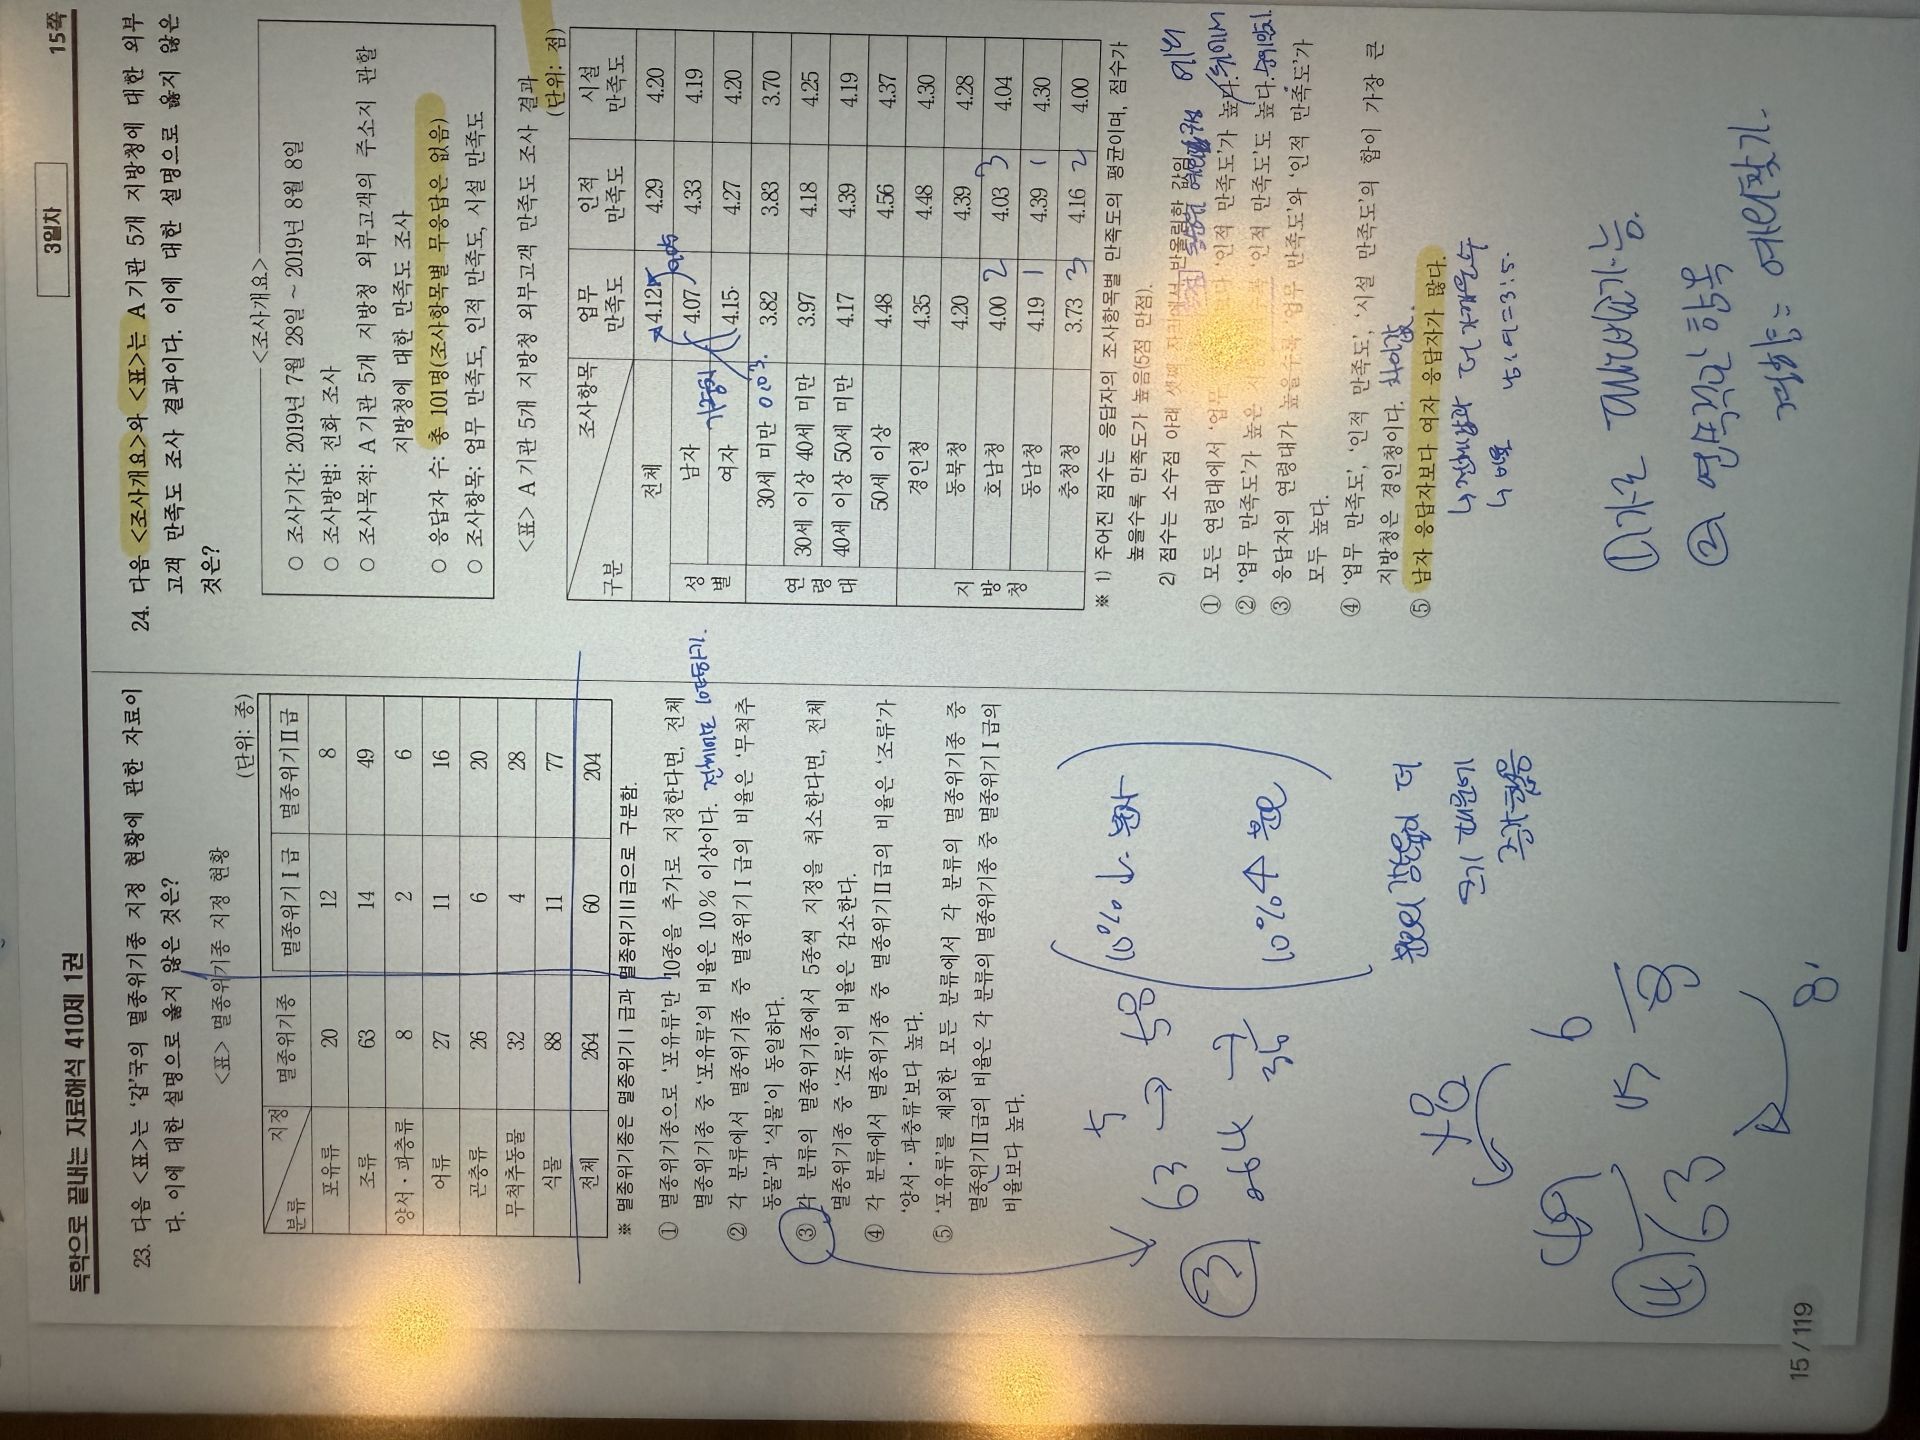 독학으로 끝내는 자료해석 410제 1권
3일차
15쪽
23. 다음 <표>는 '갑'국의 멸종위기종 지정 현황에 관한 자료이
다. 이에 대한 설명으로 옳지 않은 것은?
<표> 멸종위기종 지정 현황
(단위: 종)
지정
분류
멸종위기종 멸종위기Ⅰ급 멸종위기Ⅱ급
포유류 20 12 8
조류 63 14 49
양서·파충류 8 2 6
어류 27 11 16
곤충류 26 6 20
무척추동물 32 4 28
식물 88 11 77
전체 264 60 204
※ 멸종위기종은 멸종위기Ⅰ급과 멸종위기Ⅱ급으로 구분함.
① 멸종위기종으로 '포유류'만 10종을 추가로 지정한다면, 전체
멸종위기종 중 '포유류'의 비율은 10% 이상이다. 전체에도 10더하기.
② 각 분류에서 멸종위기종 중 멸종위기Ⅰ급의 비율은 '무척추
동물'과 '식물'이 동일하다.
③ 각 분류의 멸종위기종에서 5종씩 지정을 취소한다면, 전체
멸종위기종 중 '조류'의 비율은 감소한다.
④ 각 분류에서 멸종위기종 중 멸종위기Ⅱ급의 비율은 '조류'가
'양서·파충류'보다 높다.
⑤ '포유류'를 제외한 모든 분류에서 각 분류의 멸종위기종 중
멸종위기Ⅱ급의 비율은 각 분류의 멸종위기종 중 멸종위기Ⅰ급의
비율보다 높다.
5
③ 63 → 58 10%↓ 분자
264 → 10%↑ 분모
분모의 감소율이 더
크기 때문에
49 6
④ 63 8
8.
24. 다음 <조사개요>와 <표>는 A기관 5개 지방청에 대한 외부
고객 만족도 조사 결과이다. 이에 대한 설명으로 옳지 않은
것은?
<조사개요>
○ 조사기간: 2019년 7월 28일 ~ 2019년 8월 8일
○ 조사방법: 전화 조사
○ 조사목적: A기관 5개 지방청 외부고객의 주소지 관할
지방청에 대한 만족도 조사
○ 응답자 수: 총 101명(조사항목별 무응답은 없음)
○ 조사항목: 업무 만족도, 인적 만족도, 시설 만족도
<표> A기관 5개 지방청 외부고객 만족도 조사 결과
(단위: 점)
조사항목
구분
업무 만족도 인적 만족도 시설 만족도
전체 4.12 4.29 4.20
성별 남자 4.07 4.33 4.19
여자 4.15 4.27 4.20
연령대 30세 미만 3.82 3.83 3.70
30세 이상 40세 미만 3.97 4.18 4.25
40세 이상 50세 미만 4.17 4.39 4.19
50세 이상 4.48 4.56 4.37
지방청 경인청 4.35 4.48 4.30
동북청 4.20 4.39 4.28
호남청 4.00 2 4.03 3 4.04
동남청 4.19 1 4.39 1 4.30
충청청 3.73 3 4.16 2 4.00
※ 1) 주어진 점수는 응답자의 조사항목별 만족도의 평균이며, 점수가
높을수록 만족도가 높음(5점 만점).
2) 점수는 소수점 아래 셋째 자리에서 반올림한 값임.
① 모든 연령대에서 '업무 만족도'보다 '인적 만족도'가 높다.
② '업무 만족도'가 높은 지방청일수록 '인적 만족도'도 높다.
③ 응답자의 연령대가 높을수록 '업무 만족도'와 '인적 만족도'가
모두 높다.
④ '업무 만족도', '인적 만족도', '시설 만족도'의 합이 가장 큰
지방청은 경인청이다. 차이값.
⑤ 남자 응답자보다 여자 응답자가 많다.
↳ 전체값과 더 가까운 수
↳ 비율 남:여=3:5.
① 가중
15 / 119